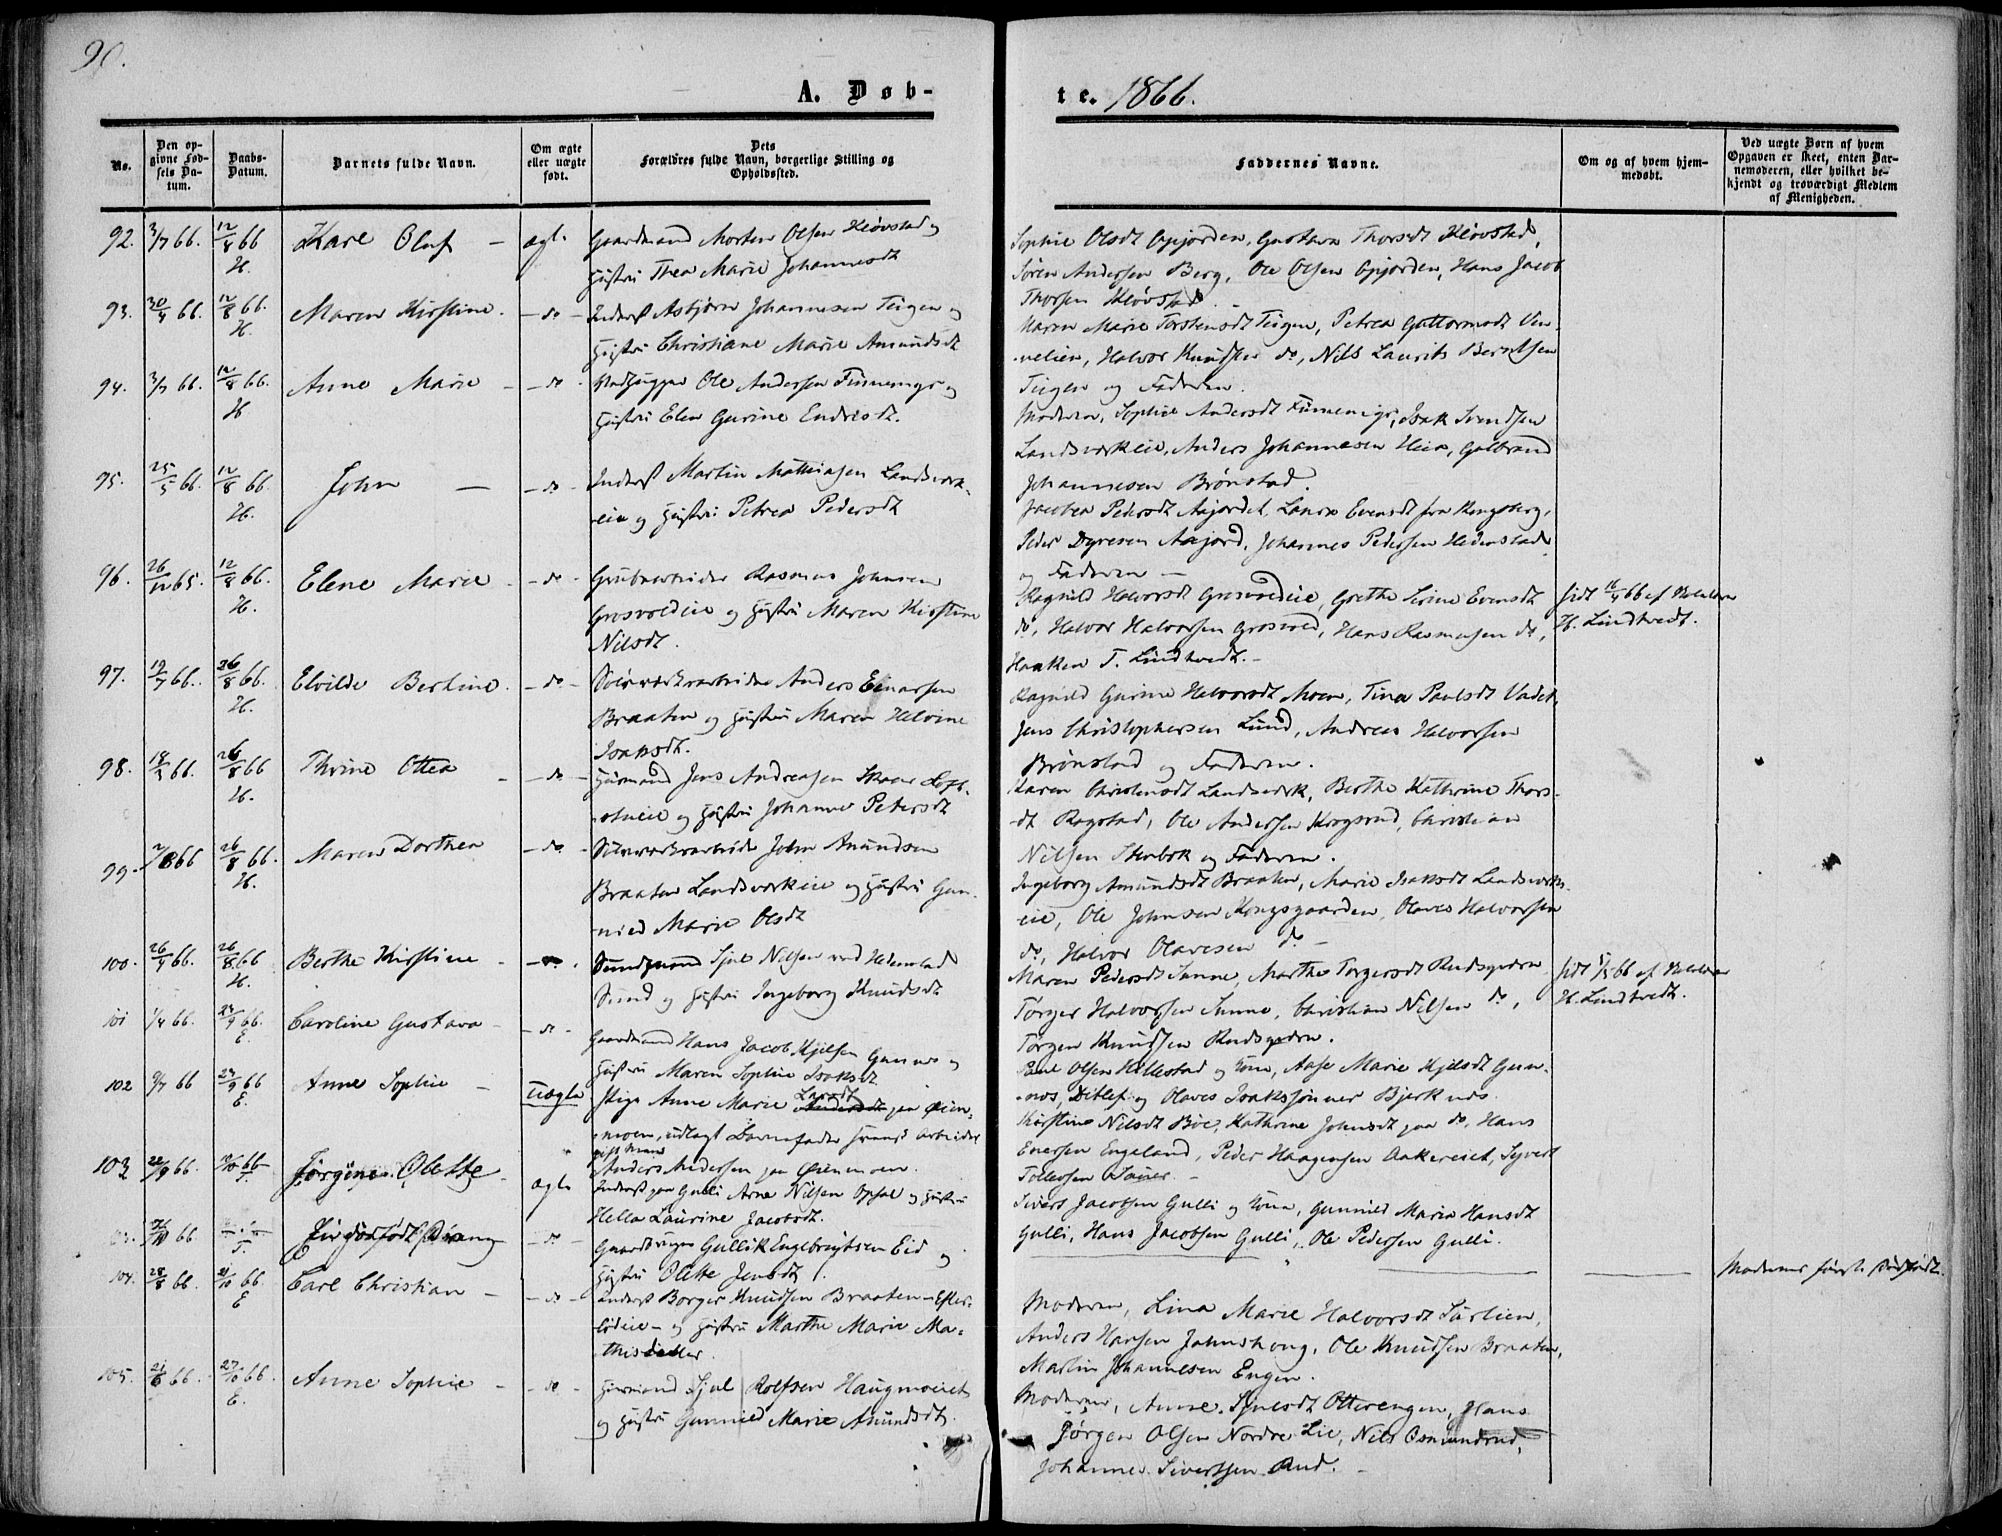 90.
A. Døb-
te. 1866.
No.
Den op-
givne Fød-
sels Da-
tum.
Daabs-
Datum.
Barnets fulde Navn.
Om ægte
eller uægte
født.
Dets
Forældres fulde Navn, borgerlige Stilling og
Opholdssted.
Faddernes Navne.
Om og af hvem hjem-
medøbt.
Ved uægte Børn af hvem
Opgaven er skeet, enten Bar-
nemoderen, eller hvilket be-
kjendt og troværdigt Medlem
af Menigheden.
92. 3/7 66. 12/8 66 H. Kare Oluf – ægte Gaardmand Morten Olsen Kløvstad og
Hustru Thea Marie Johannesdt
Sophie Olsdt Gjorden, Gustava Thorsdt Kløvstad,
Søren Andersen Berg, Ole Olsen Gjorden, Hans Jacob
Thorsen Kløvstad.
93. 30/4 66. 12/8 66. H. Maren Kirstine. – do – Inderst Asbjørn Johannesen Teigen og
Hustru Christiane Marie Amundsdt
Maren Marie Torstensdt Teigen, Petrea Guttormsdt Ven-
nelien, Halvor Knudsen do, Nils Laurits Berntsen
Teigen og Faderen.
94. 3/7 66. 12/8 66. H Anne Marie – do – Ole Andersen Finnemyr og
Hustru Elen Gurine Endresdt.
Moderen, Sophie Andersdt Finnemyr, Isak Svendsen
Landsverkeie, Anders Johannesen Heia, Gulbrand
Johannesen Brønstad.
95. 25/5 66. 12/8 66. H. John – do – Inderst Martin Mathiasen Landsverk-
eie og Hustru Petrea Pedersdt
Jacobea Pedersdt Aasjordet, Laura Evensdt fra Kongsberg,
Peder Dyresen Aasjord, Johannes Pedersen Hedenstad
og Faderen –
96. 26/12 65. 12/8 66. H. Elene Marie – do – Grubearbeider Rasmus Johnsen
Grosvoldeie og Hustru Maren Kirstine
Nilsdt.
Ragnild Halvorsdt Grosvoldeie, Grethe Serine Evensdt
do, Halvor Halvorsen Grosvold, Hans Rasmusen do,
Haaken T. Lindtvedt. –
16/4 66 af
H. Lindtvedt.
97. 19/7 66. 26/8 66. H. Elvilde Bertine. – do – Sølvverksarbeider Anders Einarsen
Braaten og Hustru Maren Helvine
Isaksdt.
Ragnild Gurine Halvorsdt Moen, Tina Paulsdt Vadet,
Jens Christophersen Lund, Andreas Halvorsen
Brønstad og Faderen.
98. 18/2 66. 26/8 66 H. Thrine Ottea – do – Husmand Jens Andreasen
og Hustru Johanne Petersdt
Karen Christensdt Landsverk, Berthe Kathrine Thors-
dt Rogstad, Ole Andersen Krogsrud, Christian
Nilsen Stenbek og Faderen.
99. 66 26/8 66. H. Maren Dorthea – do – Sølvverksarbeider John Amundsen
Braaten Landsverkeie og Hustru Gun-
nild Marie Olsdt
Ingeborg Amundsdt Braaten, Marie Isaksdt Landsverks-
eie, Ole Johnsen Kongsgaarden, Olaves Halvorsen
do, Halvor Olavesen do –
100. 26/4 66. 26/8 66 H. Berthe Kirstine – do – Sundmand Sjul Nilsen ved Hedenstad
Sund og Hustru Ingeborg Knudsdt
Maren Pedersdt Sunne, Marthe Torgersdt Rudsgeden
Torger Halvorsen Sunne, Christian Nilsen do,
Torgen Knudsen Rudsgeden.
66 af
H. Lindtvedt.
101 1/4 66. 23/9 66. E. Caroline Gustava – do – Gaardmand Hans Jacob Kjelsen Gunnes og
Hustru Maren Sophie Isaksdt
Paul Olsen Hillestad og Kone, Aase Marie Kjelsdt Gun-
nes, Ditlef og Olaves Isakssønner Bjerknes.
102 9/7 66 23/9 66 E. Anne Sophie – uægte Pige Anne Marie Larsdt
Andersdt paa Øien-
moen, udlagt Barnefader Arbeider
gift Mand
Anders Andersen paa Øienmoen.
Kirstine Nilsdt Bøe, Kathrine Johnsdt paa do, Hans
Enersen Engeland, Peder Haagensen Aakereiet, Syvert
Tollefsen
103 22/9 66. 14/10 66 Jørgine Olette. – ægte Inderst paa Gulli Arne Nilsen Opsal og Hustru
Hella Laurine Jacobsdt.
Sivert Jacobsen Gulli og Kone, Gunnild Maria Hansdt
Gulli, Hans Jacobsen Gulli, Ole Pedersen Gulli.
66 Et dødfødt Drengebarn – do – Gaardbruger Gullik Engebrigtsen Eid og
Hustru Olette Jensdt.
Moderens første dødfødt.
104. 28/8 66. 21/10 66 E Carl Christian – do – Inderst Borger Knudsen Braaten – Efte-
lødeie – og Hustru Marthe Marie Ma-
thisdatter.
Moderen, Lina Marie Halvorsdt Sørlien,
Anders Hansen Jahnskong, Ole Knudsen Braaten,
Martin Johannesen Engen.
105. 21/6 66. 27/10 66. E. Anne Sophie – do – Husmand Sjul Rolfsen Haugmoeiet
og Hustru Gunnild Marie Amundsdt.
Moderen, Anne Sjulsdt Otterengen, Hans
Jørgen Olsen Nordre Lie, Nils Osmundrud,
Johannes Sivertsen Rud. –